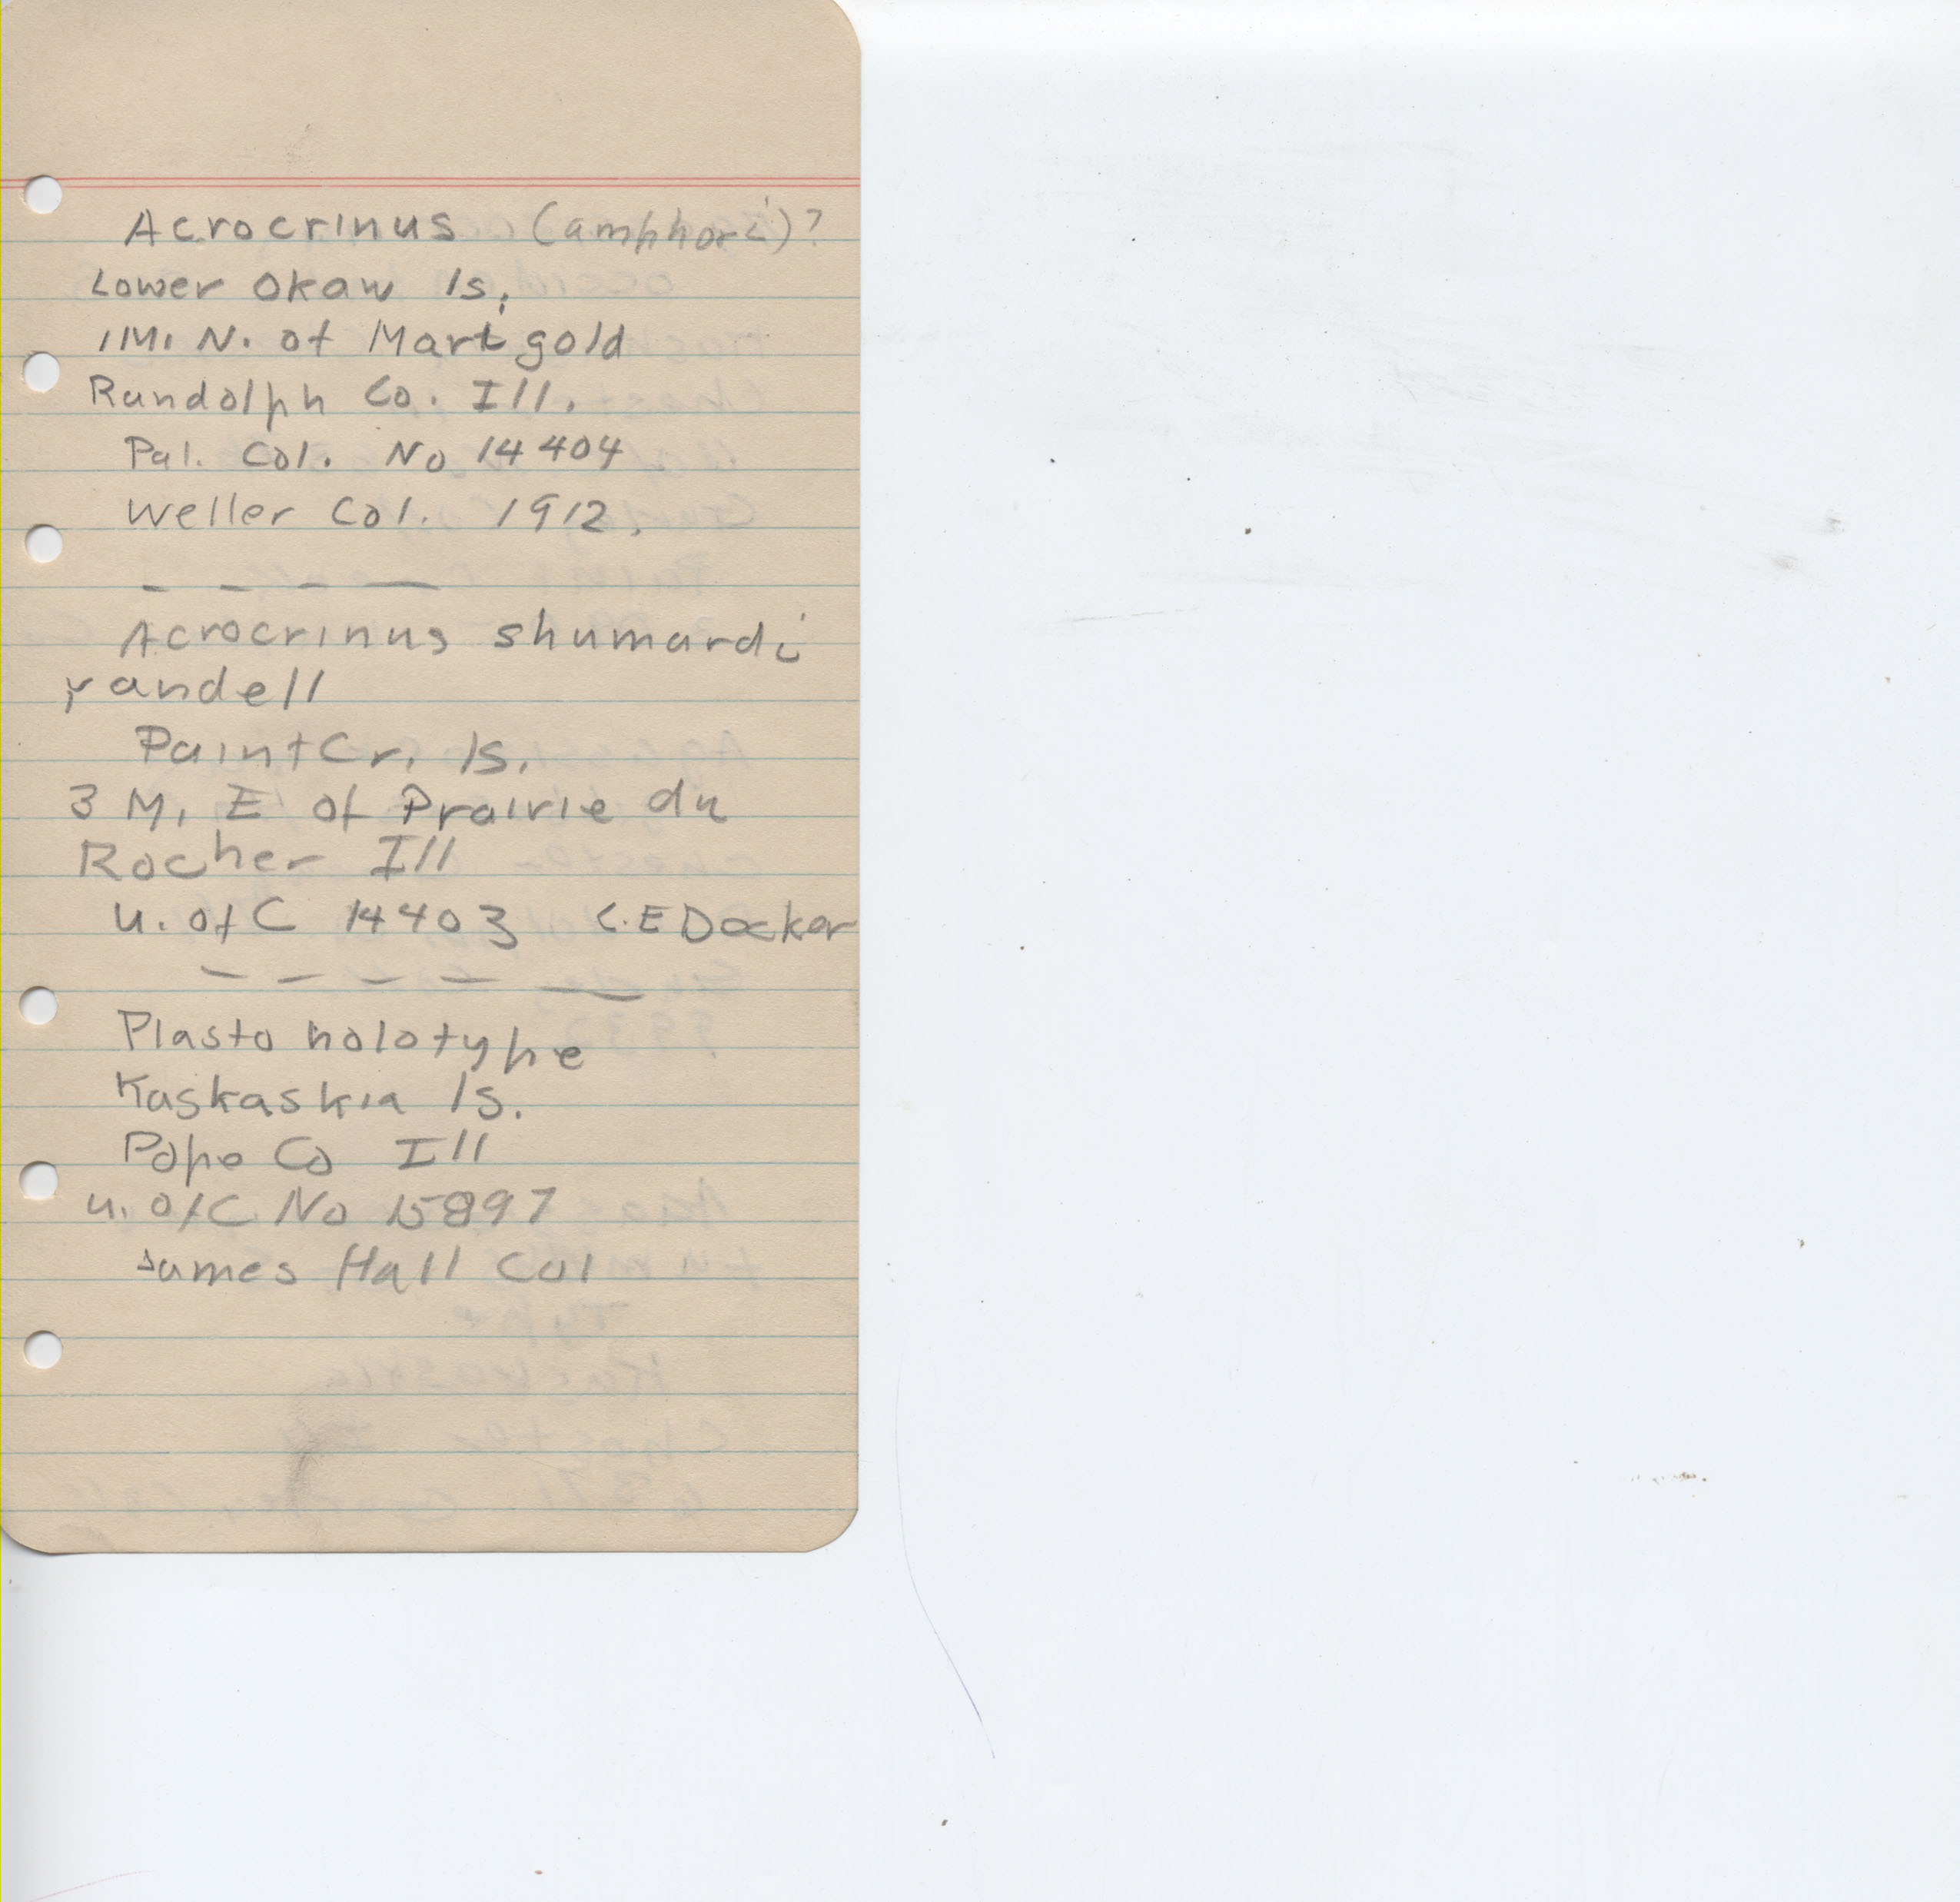 Acrocrinus (amphora)?
Lower Okaw ls.
1 M. N. of Marigold
Randolph Co. Ill.
Pal. Col. No 14404
Weller Col. 1912.
- - - —
Acrocrinus shumardi
yandell
Paint Cr. ls.
3 M. E of Prairie du
Rocher Ill
U. of C 14403 C.E Decker
- - - - —
Plasto holotype
Kaskaskia ls.
Pope Co Ill
U. of C No 15897
James Hall Col